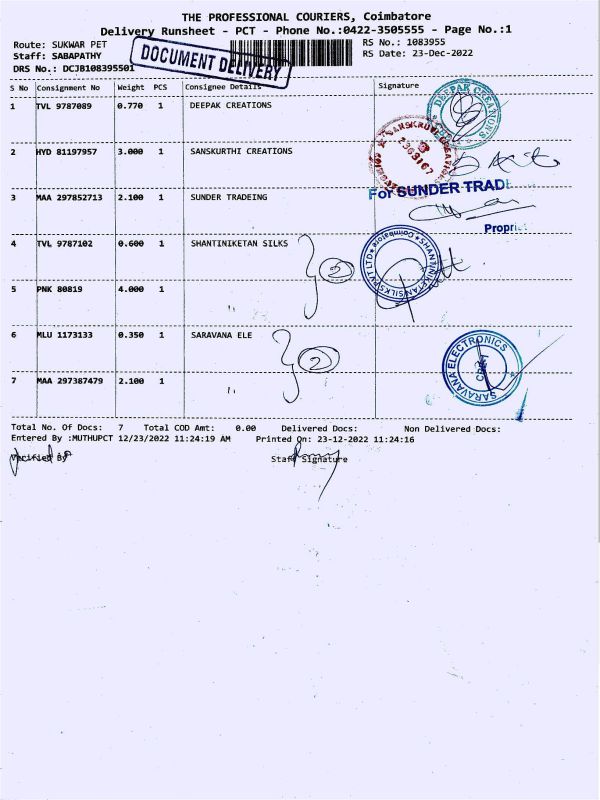 THE PROFESSIONAL COURIERS, Coimbatore
Delivery Runsheet - PCT - Phone No.:0422-3505555 - Page No.:1
Route: SUKWAR PET RS No.: 1083955
Staff: SABAPATHY RS Date: 23-Dec-2022
DRS No.: DCJB108395501
DOCUMENT DELIVERY
S No Consignment No Weight PCS Consignee Details Signature
1 TVL 9787089 0.770 1 DEEPAK CREATIONS
DEEPAK CREATIONS
2 HYD 81197957 3.000 1 SANSKURTHI CREATIONS
3 MAA 297852713 2.100 1 SUNDER TRADEING
For SUNDER TRADE
Propri
4 TVL 9787102 0.600 1 SHANTINIKETAN SILKS
2
SHANTINIKETAN SILKS PVT LTD Coimbatore
5 PNK 80819 4.000 1 "
6 MLU 1173133 0.350 1 SARAVANA ELE
2
SARAVANA ELECTRONICS
CBE-1
7 MAA 297387479 2.100 1 "
Total No. Of Docs: 7 Total COD Amt: 0.00 Delivered Docs: Non Delivered Docs:
Entered By :MUTHUPCT 12/23/2022 11:24:19 AM Printed On: 23-12-2022 11:24:16
Verified By Staff Signature